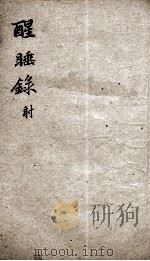 醒睡錄
射
mtoou.info